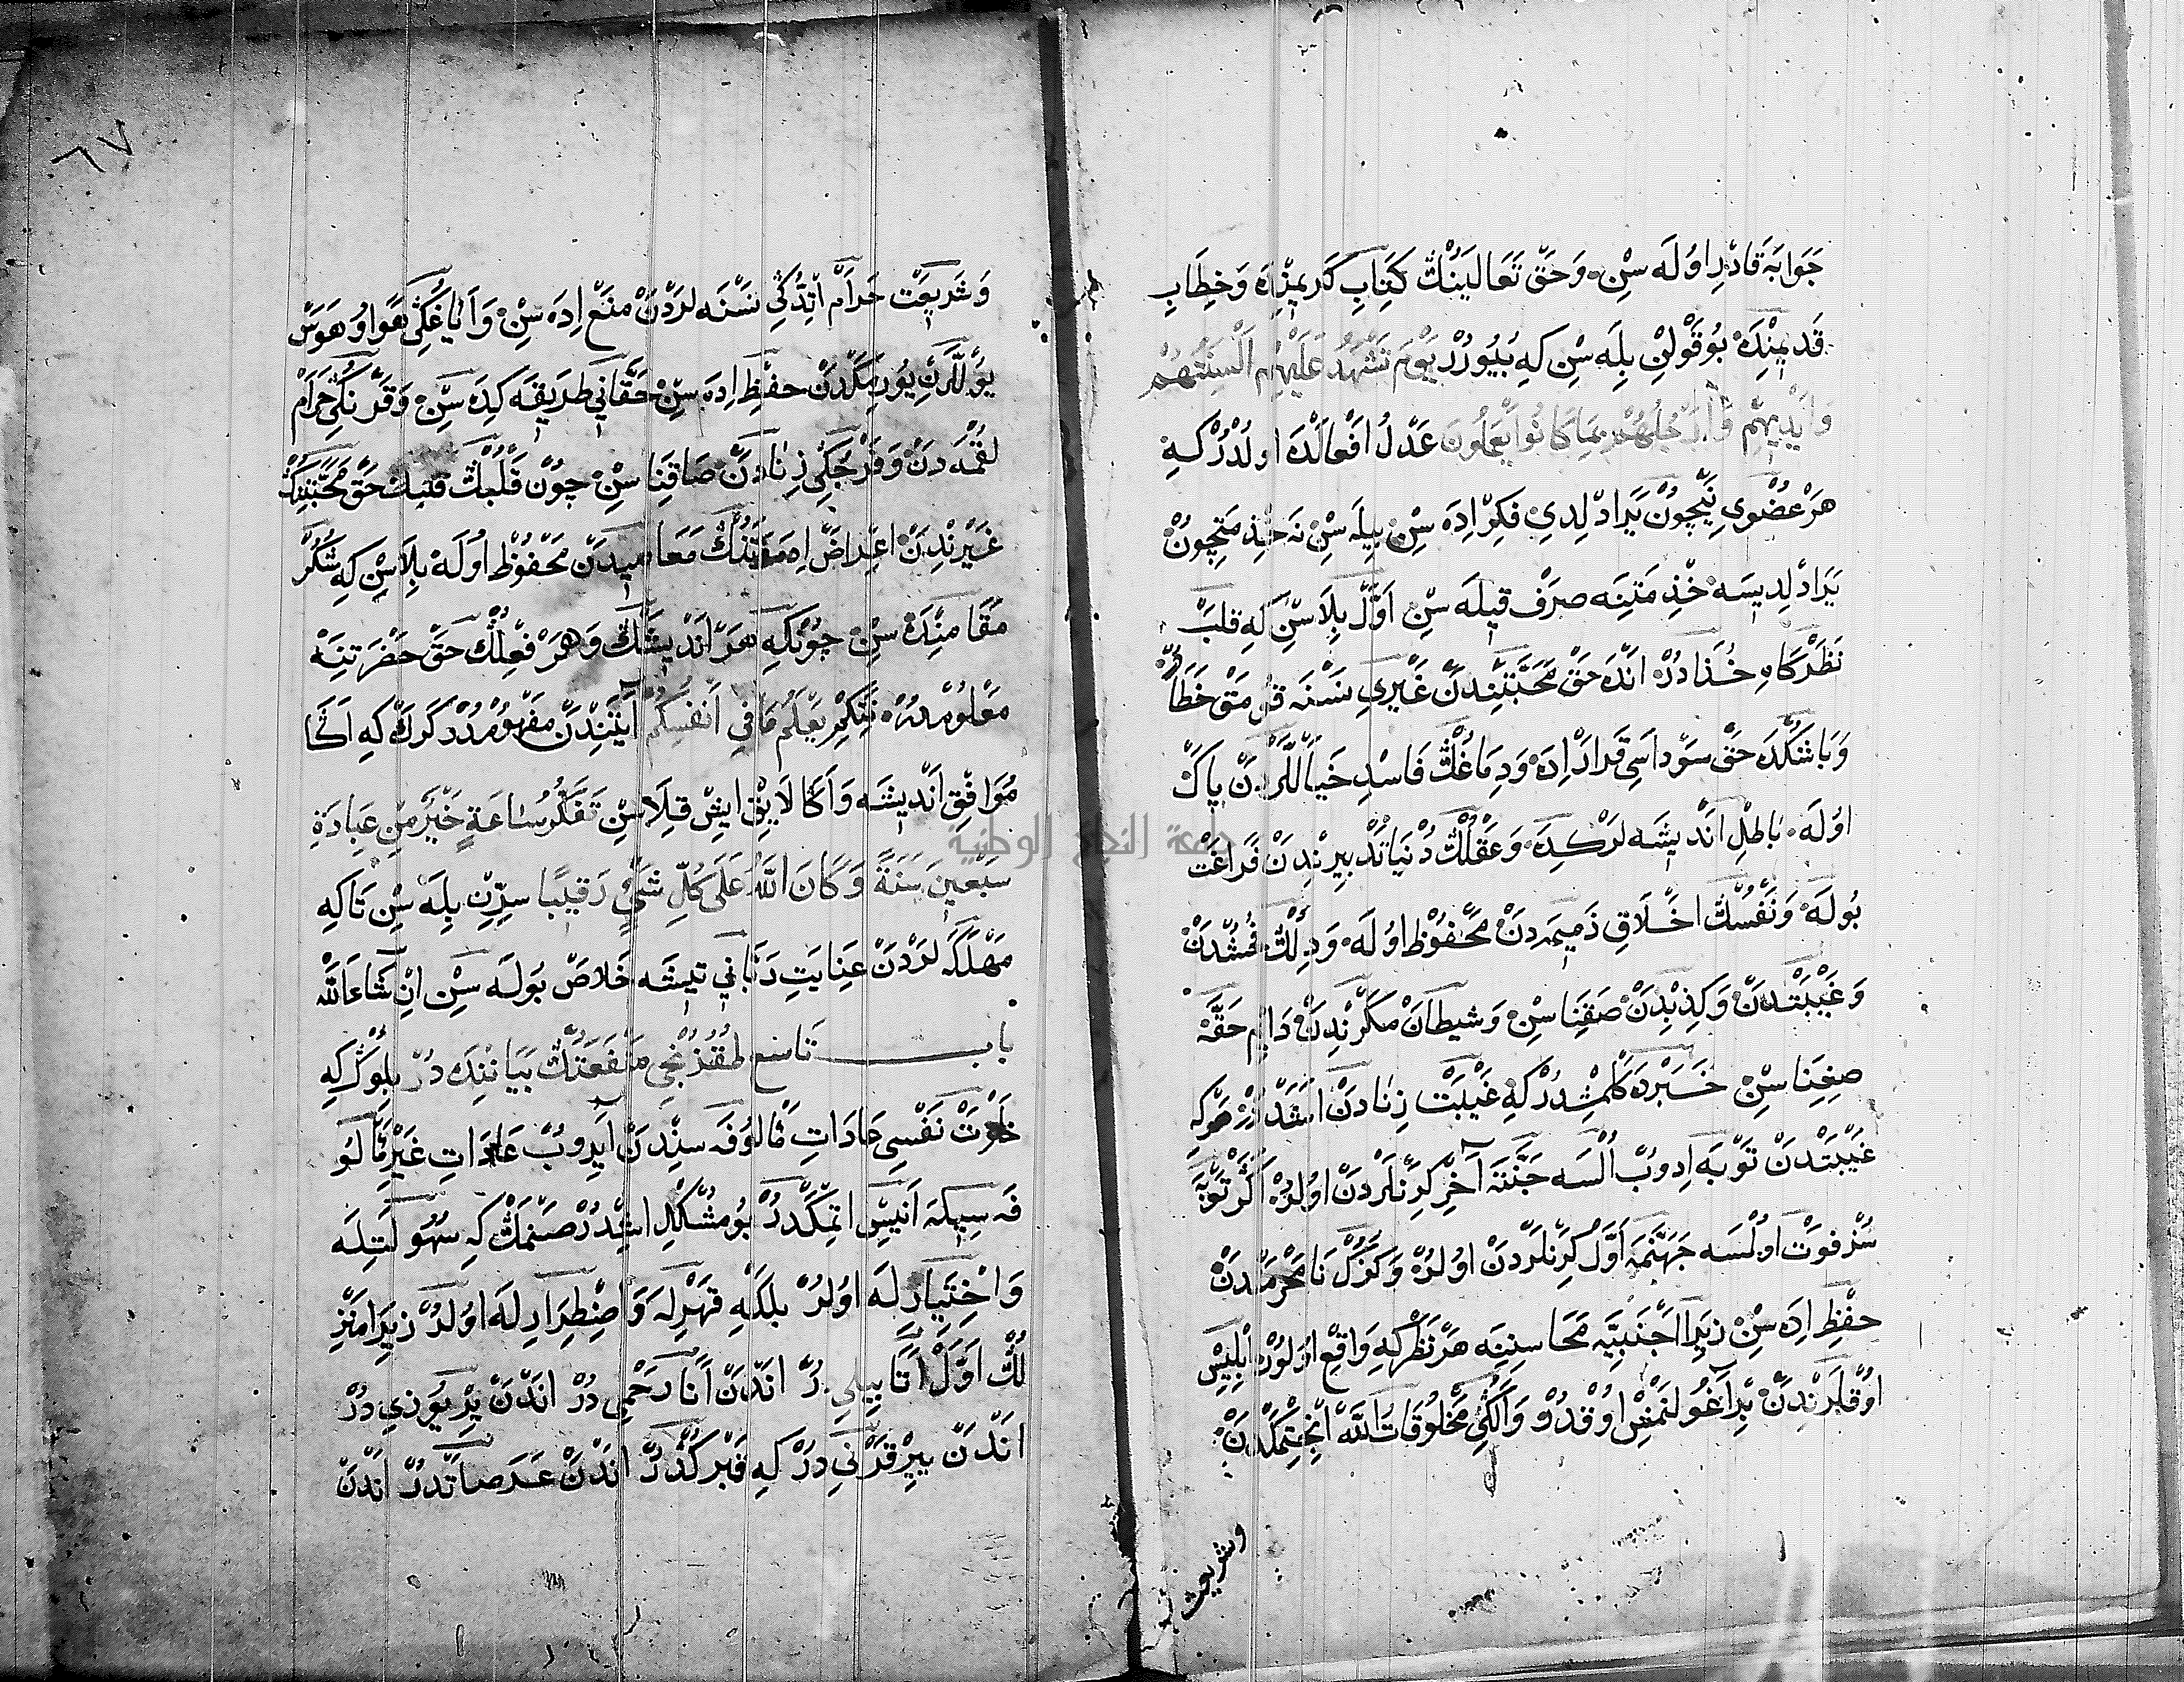 جَوَابَه قَادِر اوُلَه سِنْ وَحَقّ تَعَالَينُكْ كِتَابِ كَرِيمِنْدَه وَخِطَابِ
قَدِيمِنْدَه بُو قَوْلِنْ بِلَه سِن كِه بُيُورُرْ يَوْمَ تَشْهَدُ عَلَيْهِمْ اَلْسِنَتُهُمْ
وَاَيْدِيهِمْ وَاَرْجُلُهُمْ بِمَا كَانُوا يَعْمَلُونَ عَدْلُ اَفْعَالَنْدَه اولدُرْ كه
هَرْ عُضْوِي نِيچُونْ يَرَادِلْدِي فِكِرْ ادَه سِنْ بِيلَه سِنْ نَه خِذْمَتِچُونْ
يَرَادِلْدِيسَه خِذْمَتِنَه صَرْف قِيلَه سِنْ اَوَّل بِلَاسِنْ كِه قَلبْ
نَظَرْكَاهِ خُدَا دُرْ اَنْدَه حَقّ مَحَبَّتِنْدَنْ غَيْرِي نَسْنَه قُومَقْ خَطَادُرْ
وَبَاشُكْدَه حَقّ سَوْدَاسِي قَرَارْ ادَه وَدِمَاغُكْ فَاسْدِ خَيَالْلَرْدَنْ پَاكْ
اوُلَه بَاطِلِ اَنْدِيشَه لَرْ كِدَه وَعَقْلُكْ دُنْيَا تَدْبِيرِنْدَنْ فَرَاغَتْ
بُولَه وَنَفْسُكْ اَخْلَاقِ ذَمِيمَه دَنْ مَحْفُوظ اوُلَه وَدِلُكْ فُحُشْدَنْ
وَغَيْبَتْدَنْ وَكِذِبْدَنْ صَقِنَا سِنْ وَشَيطَانْ مَكْرِنْدَنْ دَايِم حَقَّه
صِغِنَا سِنْ خَبَرْدَه كَلْمِشْدُرْ كِه غَيْبَتْ زِنَادَنْ اَشَدْدُرْ هَركِه
غَيْبَتْدَنْ تَوْبَه اِدُوبْ اُلْسَه جَنَّتَه آخِرْ كِرَنْلَرْدَنْ اوُلُرْ اَكَرْ تَوْبَه
سُزْ فوت اوُلْسَه جَهَنَّمَه اَوَّل كِرَنْلَرْدَنْ اوُلُرْ وَكُوزُكْ نَامَحْرَمْدَنْ
حِفْظ ادَه سِنْ زِيرَا اَجْنَبِيَّه مَحَاسِنِنَه هَرْ نَظَرْ كِه وَاقِع اوُلُورْ اِبْلِيسْ
اوُقْلَرِنْدَنْ بِرْ آغُولَنْمِشْ اوُقْدُرْ وَاَلُكِي مَخْلُوقَاتَ اللّٰه اِنْجِتْمَكْدَنْ
وشريعت
٦٧
وَشَرِيعَتْ حَرَام اِتْدُكِي نَسْنَه لَرْدَنْ مَنْع اِدَه سِنْ وَاَيَاغُكِي هَوَا وُ هَوَسْ
يُوللَّرِنَه يُورِمَكْدَنْ حِفْظ اِدَه سِنْ حَقَّانِي طَرِيقَه كِدَه سِنْ وَقَرْنُكِي حَرَامْ
لُقْمَه دَنْ وَفَرْجُكِي زِنَادَنْ صَاقِنَا سِنْ چُونْ قَلْبُكْ حَقّ مَحَبَّتِنِكْ
غَيْرِنْدَنْ اِعْرَاضْ اِدَه مَعَاصِيدَنْ مَحْفُوظ اوُلَه بِلَاسِنْ كِه شُكُرْ
مَقَامِنْدَه سِنْ چُونكِه هَرْ اَنْدِيشَكْ وَهَرْ فِعْلُكْ حَقّ حَضْرَتِنَه
مَعْلُومْدُرْ نِتَكِمْ يَعْلَمُ مَا فِي اَنفُسِكُم آيَتِنْدَنْ مَفْهُومْدُرْ كَرَكْ كِه اَكَا
مُوَافِق اَنْدِيشَه وَاَكَا لَايِق ايشْ قِلَاسِنْ تَفَكُّرُ سَاعَةٍ خَيْرٌ مِنْ عِبَادَةِ
سَبْعِينَ سَنَةً وَكَانَ اللّٰهُ عَلَى كُلِّ شَيْءٍ رَقِيبًا سِرِّنْ بِلَه سِنْ تَا كِه
مَهْلَكَه لَرْدَنْ عِنَايَتِ رَبَّانِي تِيشَه خَلَاصْ بُولَه سِنْ اِنْ شَاءَ اللّٰه
باب تَاسع طُقُزُنْجِي مَنْفَعَتُكْ بَيَانِنْدَه دُرْ بِلُوكْ كِه
خَلْوَتْ نَفْسِي عَادَاتِ مَالُوفَه سِنْدَنْ اَيِرُوبْ عَادَاتِ غَيْرِ مَالُو
فَه سِيلَه اَنِيسْ اِتْمَكْدُرْ بُو مُشْكِل اِشْدُرْ صَنْمَكْ كِه سُهُولَتِلَه
وَاِخْتِيَارِلَه اوُلُرْ بَلكِه قَهْرِلَه وَاِضْطِرَارِلَه اوُلُرْ زِيرَا مَنْزِ
لُكْ اَوَّل اَتَا بِيلِي دُرْ اَنْدَنْ اَنَا رَحْمِي دُرْ اَنْدَنْ يِرْ يُوزِي دُرْ
اَنْدَنْ يِيرْ قَرْنِي دُرْ كِه قَبْرْ كُدُرْ اَنْدَنْ عَرَصَاتْدُرْ اَنْدَنْ
جامعة النجاح الوطنية